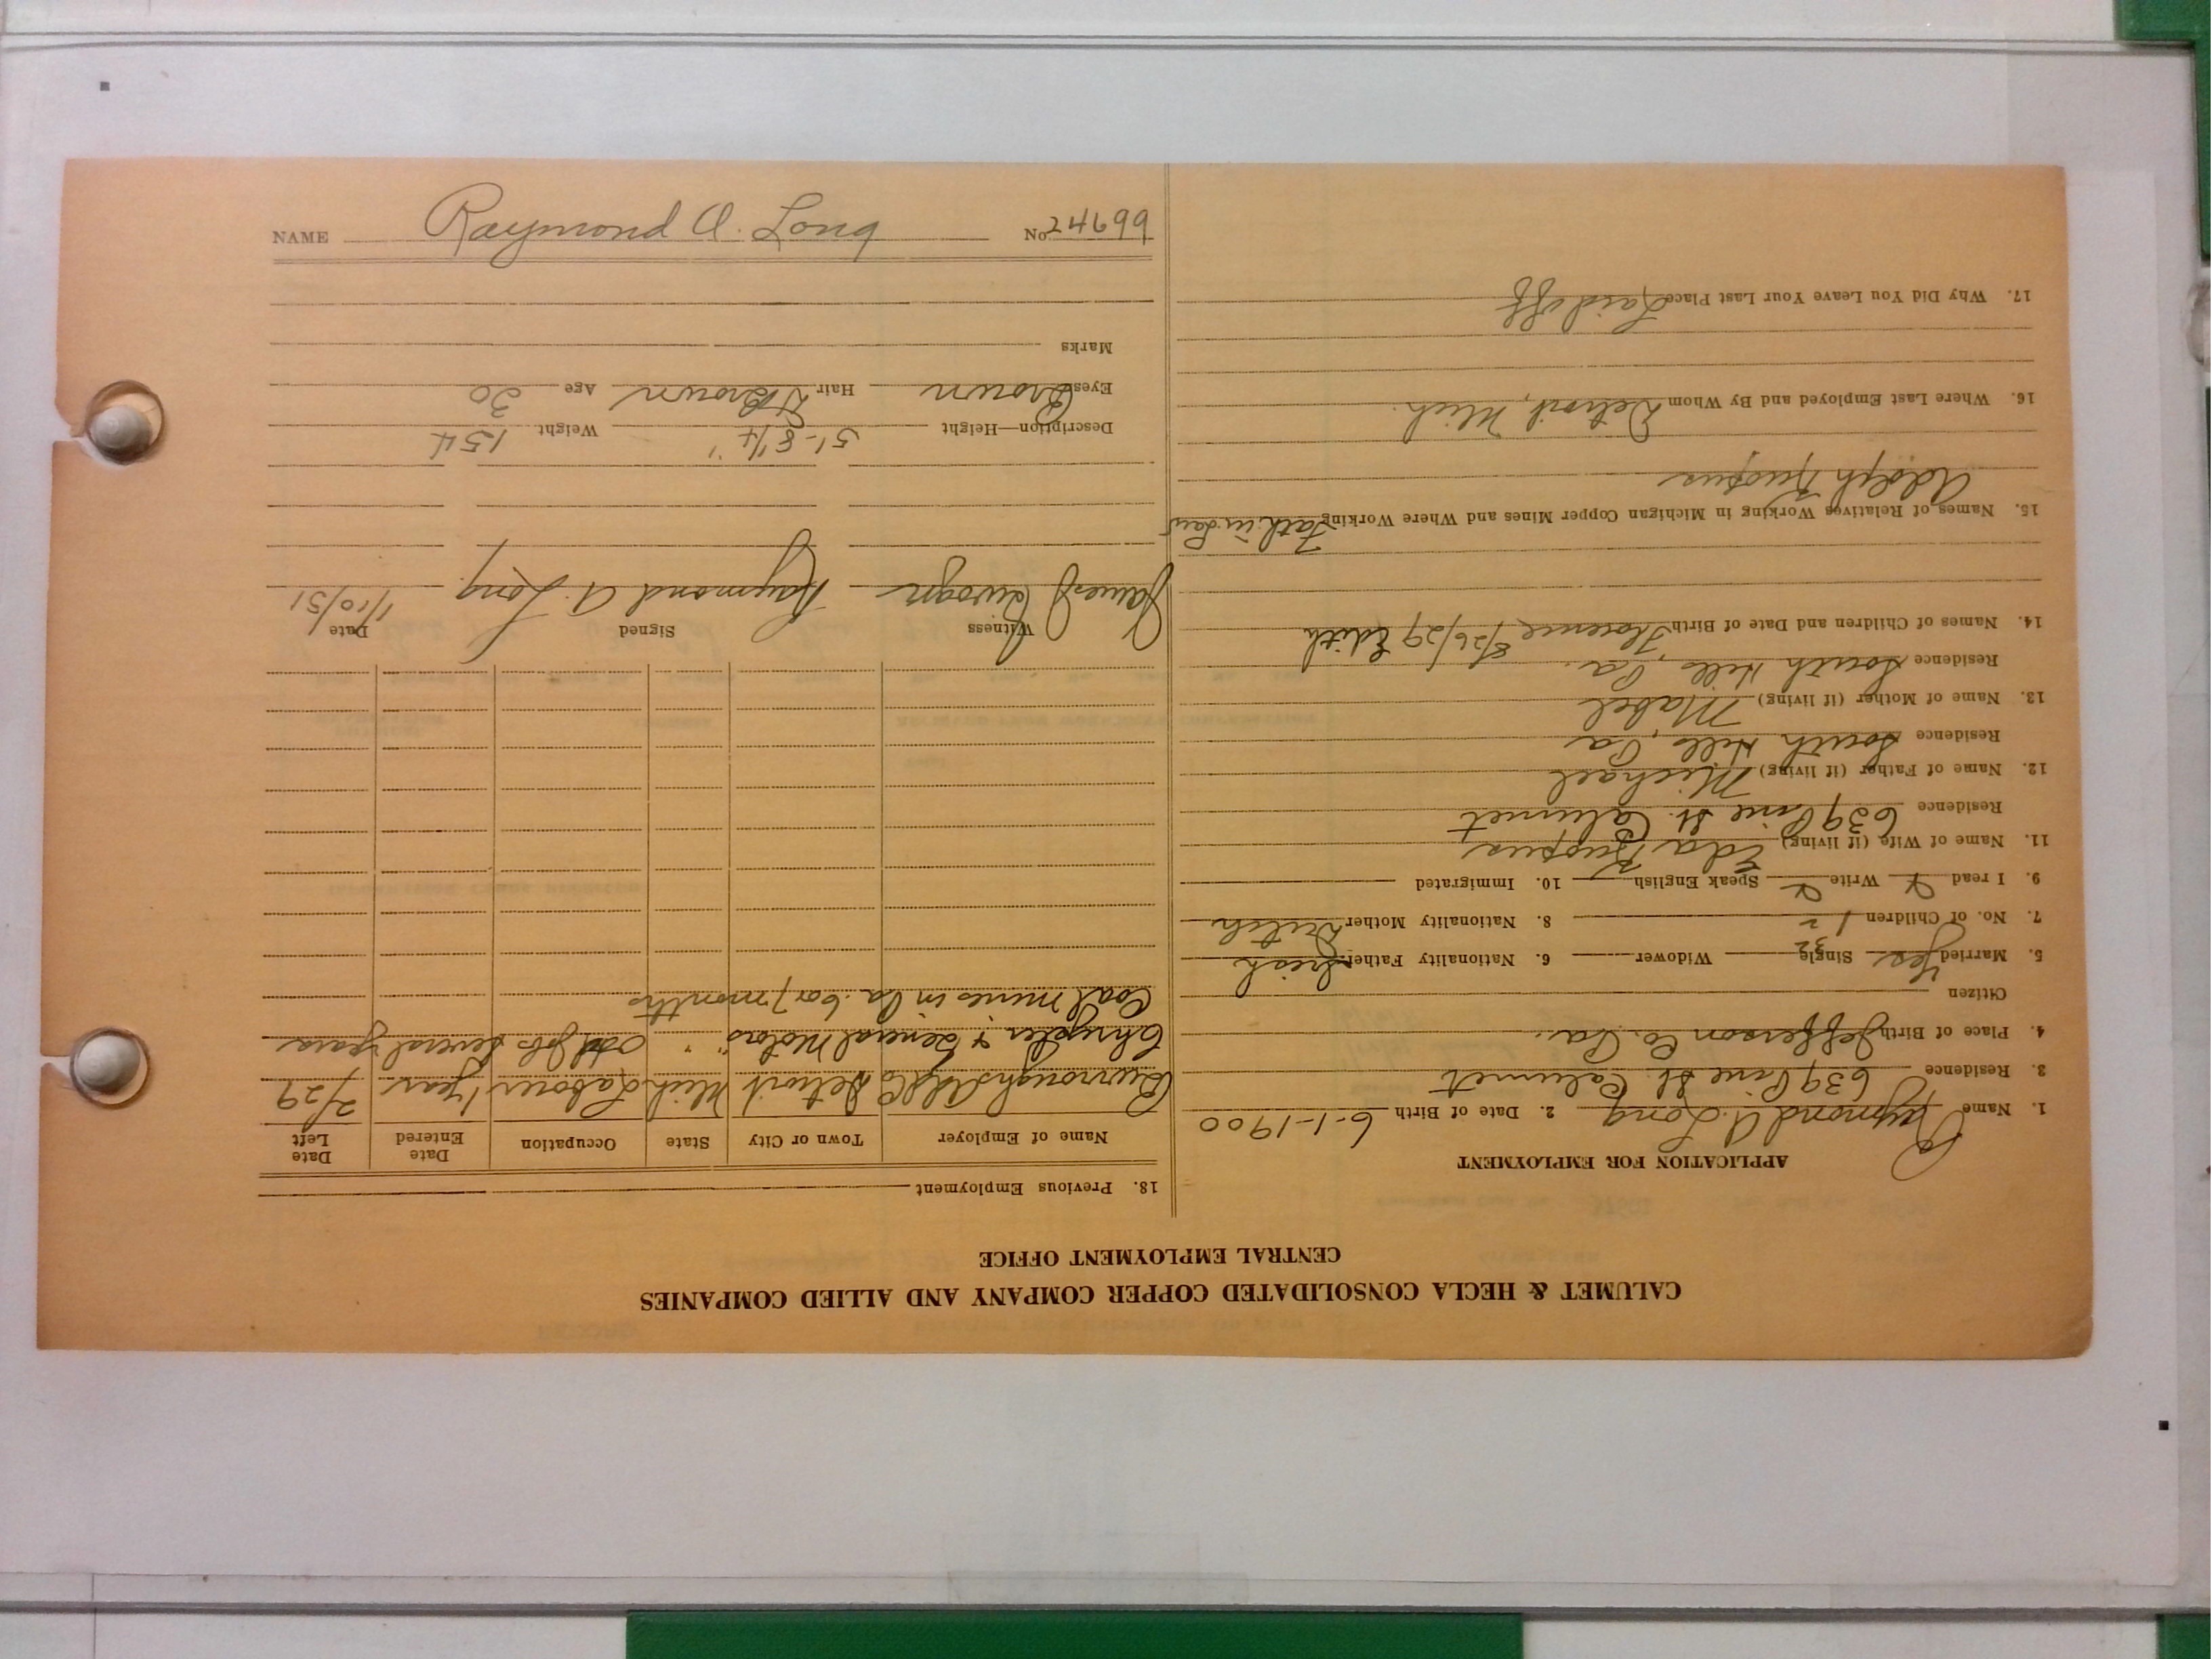 NAME Raymond A. Long No 24699
CALUMET & HECLA CONSOLIDATED COPPER COMPANY AND ALLIED COMPANIES
CENTRAL EMPLOYMENT OFFICE
APPLICATION FOR EMPLOYMENT
1. Name Raymond A. Long 2. Date of Birth 6-1-1900
3. Residence 639 Pine St. Calumet
4. Place of Birth Jefferson Co. Pa.
Citizen
5. Married Yes Single 32 Widower 6. Nationality Father Irish
7. No. of Children 1 2 8. Nationality Mother Dutch
9. I read Write Speak English 10. Immigrated
11. Name of Wife (if living) Eda
Residence 639 Pine St. Calumet
12. Name of Father (if living) Michael
Residence South Hill, Pa
13. Name of Mother (if living) Mabel
Residence South Hill, Pa.
14. Names of Children and Date of Birth Florence 8/26/29 Edith
15. Names of Relatives Working in Michigan Copper Mines and Where Working Fath in Law
Adolph
16. Where Last Employed and By Whom Detroit, Mich.
17. Why Did You Leave Your Last Place Laid off
18. Previous Employment
Name of Employer Town or City State Occupation Date Entered Date Left
Burroughs Add Co Detroit Mich Laborer 1 year 2/29
Chrysler & General Motors " " Odd jobs several years
Coal mines in Pa. 6 or 7 months
Witness Signed Date
James Raymond A. Long 1/10/31
Description—Height 5'-8 1/4" Weight 154
Eyes Brown Hair Brown Age 30
Marks